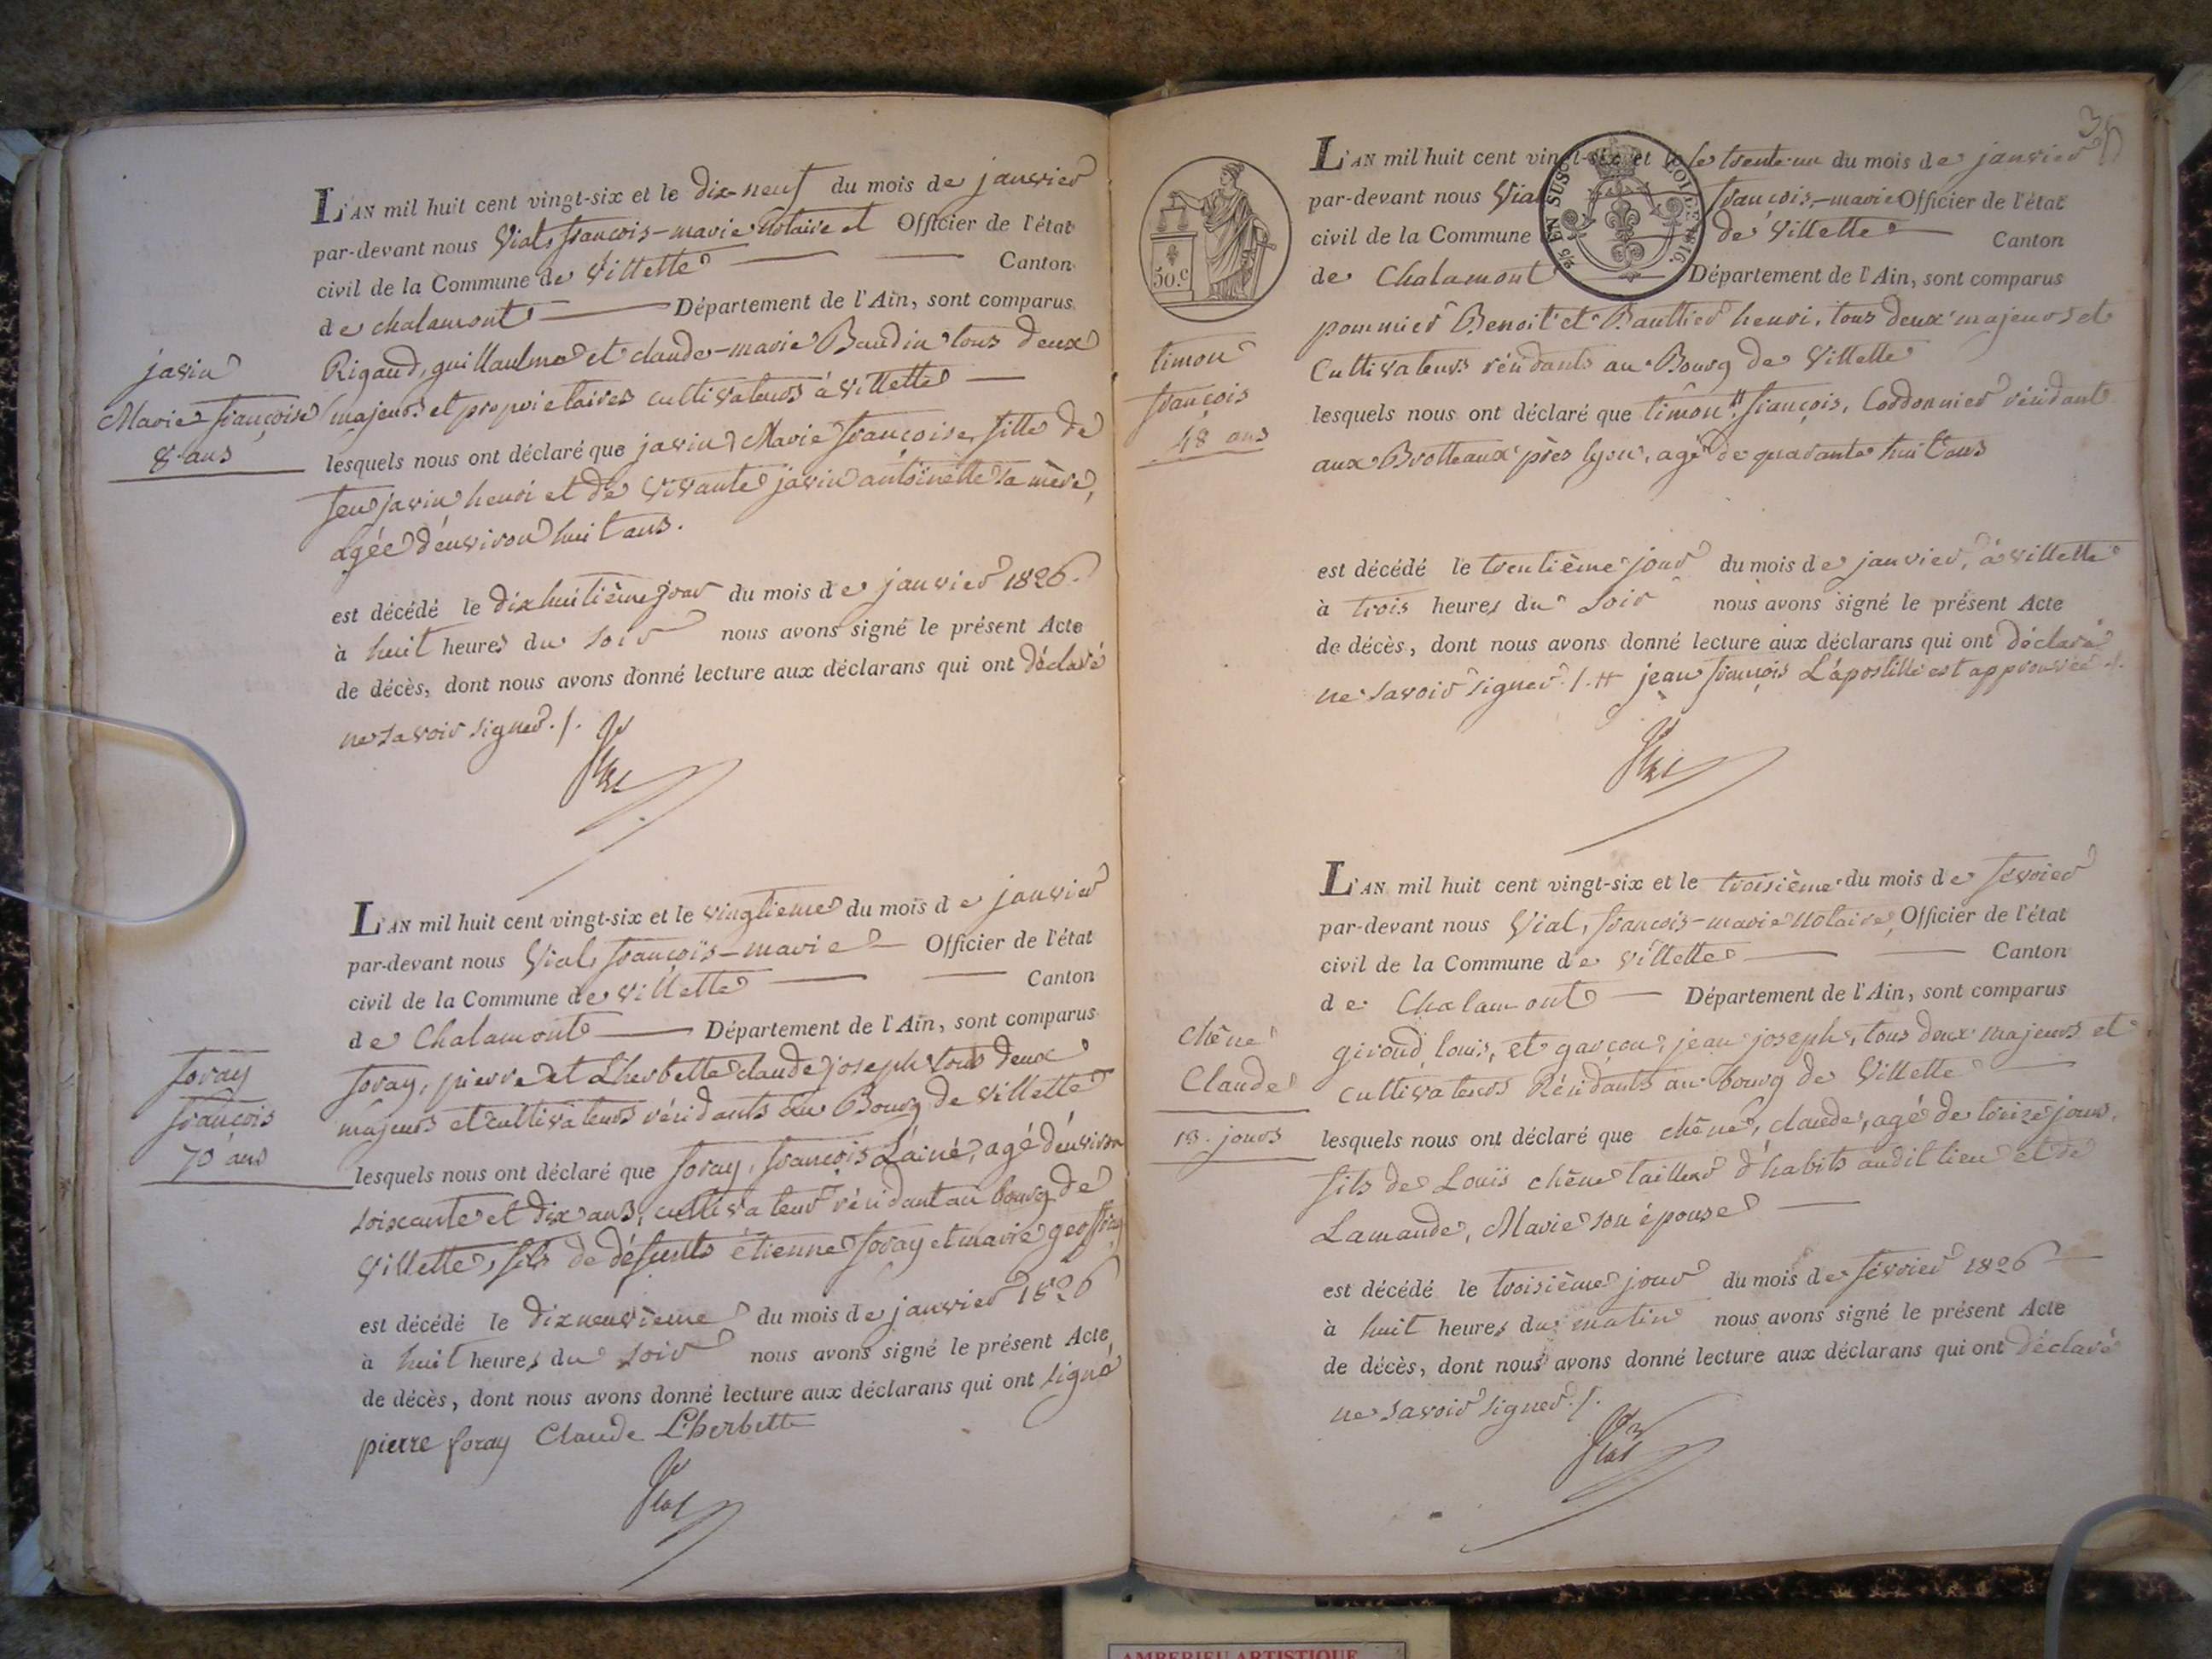 javin
Marie françoise
8 ans
L'AN mil huit cent vingt-six et le dix-neuf du mois de janvier
par-devant nous Vial, françois-marie Notaire et Officier de l'état
civil de la Commune de Villette Canton
de chalamont Département de l'Ain, sont comparus
Rigaud, guillaulme et claude-marie Baudin tous deux
majeurs et propriétaires cultivateurs à villette
lesquels nous ont déclaré que javin, Marie françoise, fille de
feu javin henri et de vivante javin antoinette sa mère,
agée d'environ huit ans.
est décédé le dixhuitième jour du mois de janvier 1826.
à huit heures du soir nous avons signé le présent Acte
de décès, dont nous avons donné lecture aux déclarans qui ont déclaré
ne savoir signer./.
Vial
foray
françois
70 ans
L'AN mil huit cent vingt-six et le vingtieme du mois de janvier
par-devant nous Vial, françois-marie Officier de l'état
civil de la Commune de Villette Canton
de Chalamont Département de l'Ain, sont comparus
foray, pierre et Lherbette claude joseph tous deux
majeurs et cultivateurs résidants au Bourg de Villette
lesquels nous ont déclaré que foray, françois L'ainé, agé d'environ
soixante et dix ans, cultivateur résidant au bourg de
Villette, fils de défunts étienne foray et marie geoffray
est décédé le dixneuvième du mois de janvier 1826
à huit heures du soir nous avons signé le présent Acte
de décès, dont nous avons donné lecture aux déclarans qui ont signé
pierre foray Claude Lherbette
Vial
35
50.c
EN SUS
ROI DE 1816
timon
françois
48 ans
L'AN mil huit cent vingt-six et le le trente un du mois de janvier
par-devant nous Vial françois-marie Officier de l'état
civil de la Commune de Villette Canton
de Chalamont Département de l'Ain, sont comparus
pommier Benoit et Bauthier henri, tous deux majeurs et
Cultivateurs résidants au Bourg de Villette
lesquels nous ont déclaré que timon # françois, Cordonnier résidant
aux Brotteaux près lyon, agé de quarante huit ans
est décédé le trentième jour du mois de janvier, à villette
à trois heures du soir nous avons signé le présent Acte
de décès, dont nous avons donné lecture aux déclarans qui ont déclaré
ne savoir signer./. # jean françois L'apostille est approuvée./.
Vial
chêne
Claude
13 jours
L'AN mil huit cent vingt-six et le troisième du mois de février
par-devant nous Vial, françois-marie notaire, Officier de l'état
civil de la Commune de Villette Canton
de Chalamont Département de l'Ain, sont comparus
giroud louis, et garçon, jean joseph, tous deux majeurs et
cultivateurs Résidants au bourg de Villette
lesquels nous ont déclaré que chêne, claude, agé de treize jours,
fils de Louis chêne tailleur d'habits audit lieu et de
Lamande, Marie son épouse
est décédé le troisième jour du mois de février 1826
à huit heures du matin nous avons signé le présent Acte
de décès, dont nous avons donné lecture aux déclarans qui ont déclaré
ne savoir signer./.
Vial
AMBERIEU ARTISTIQUE